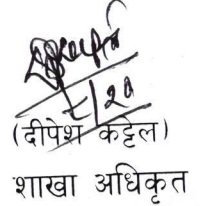 ८/२०
(दीपेश कट्टेल)
शाखा अधिकृत